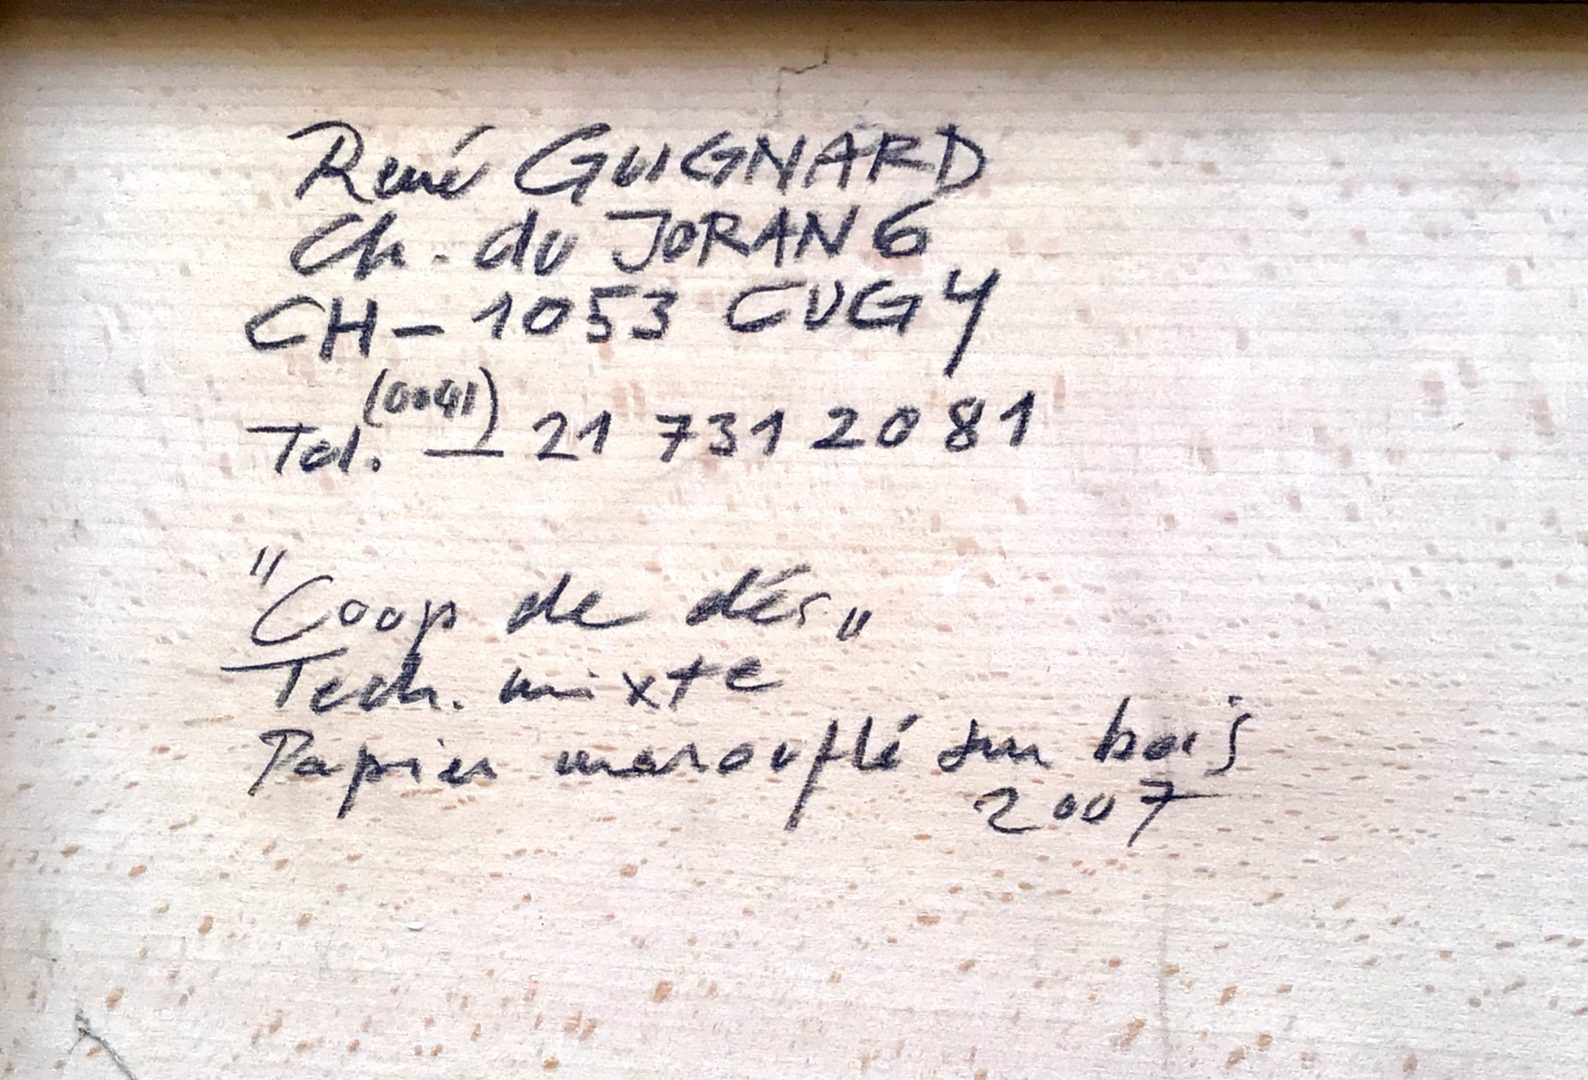 René GUIGNARD
Ch. du JORAN 6
CH - 1053 CUGY
Tel. (0041) 21 731 20 81
"Coup de dés"
Tech. mixte
Papier marouflé sur bois
2007